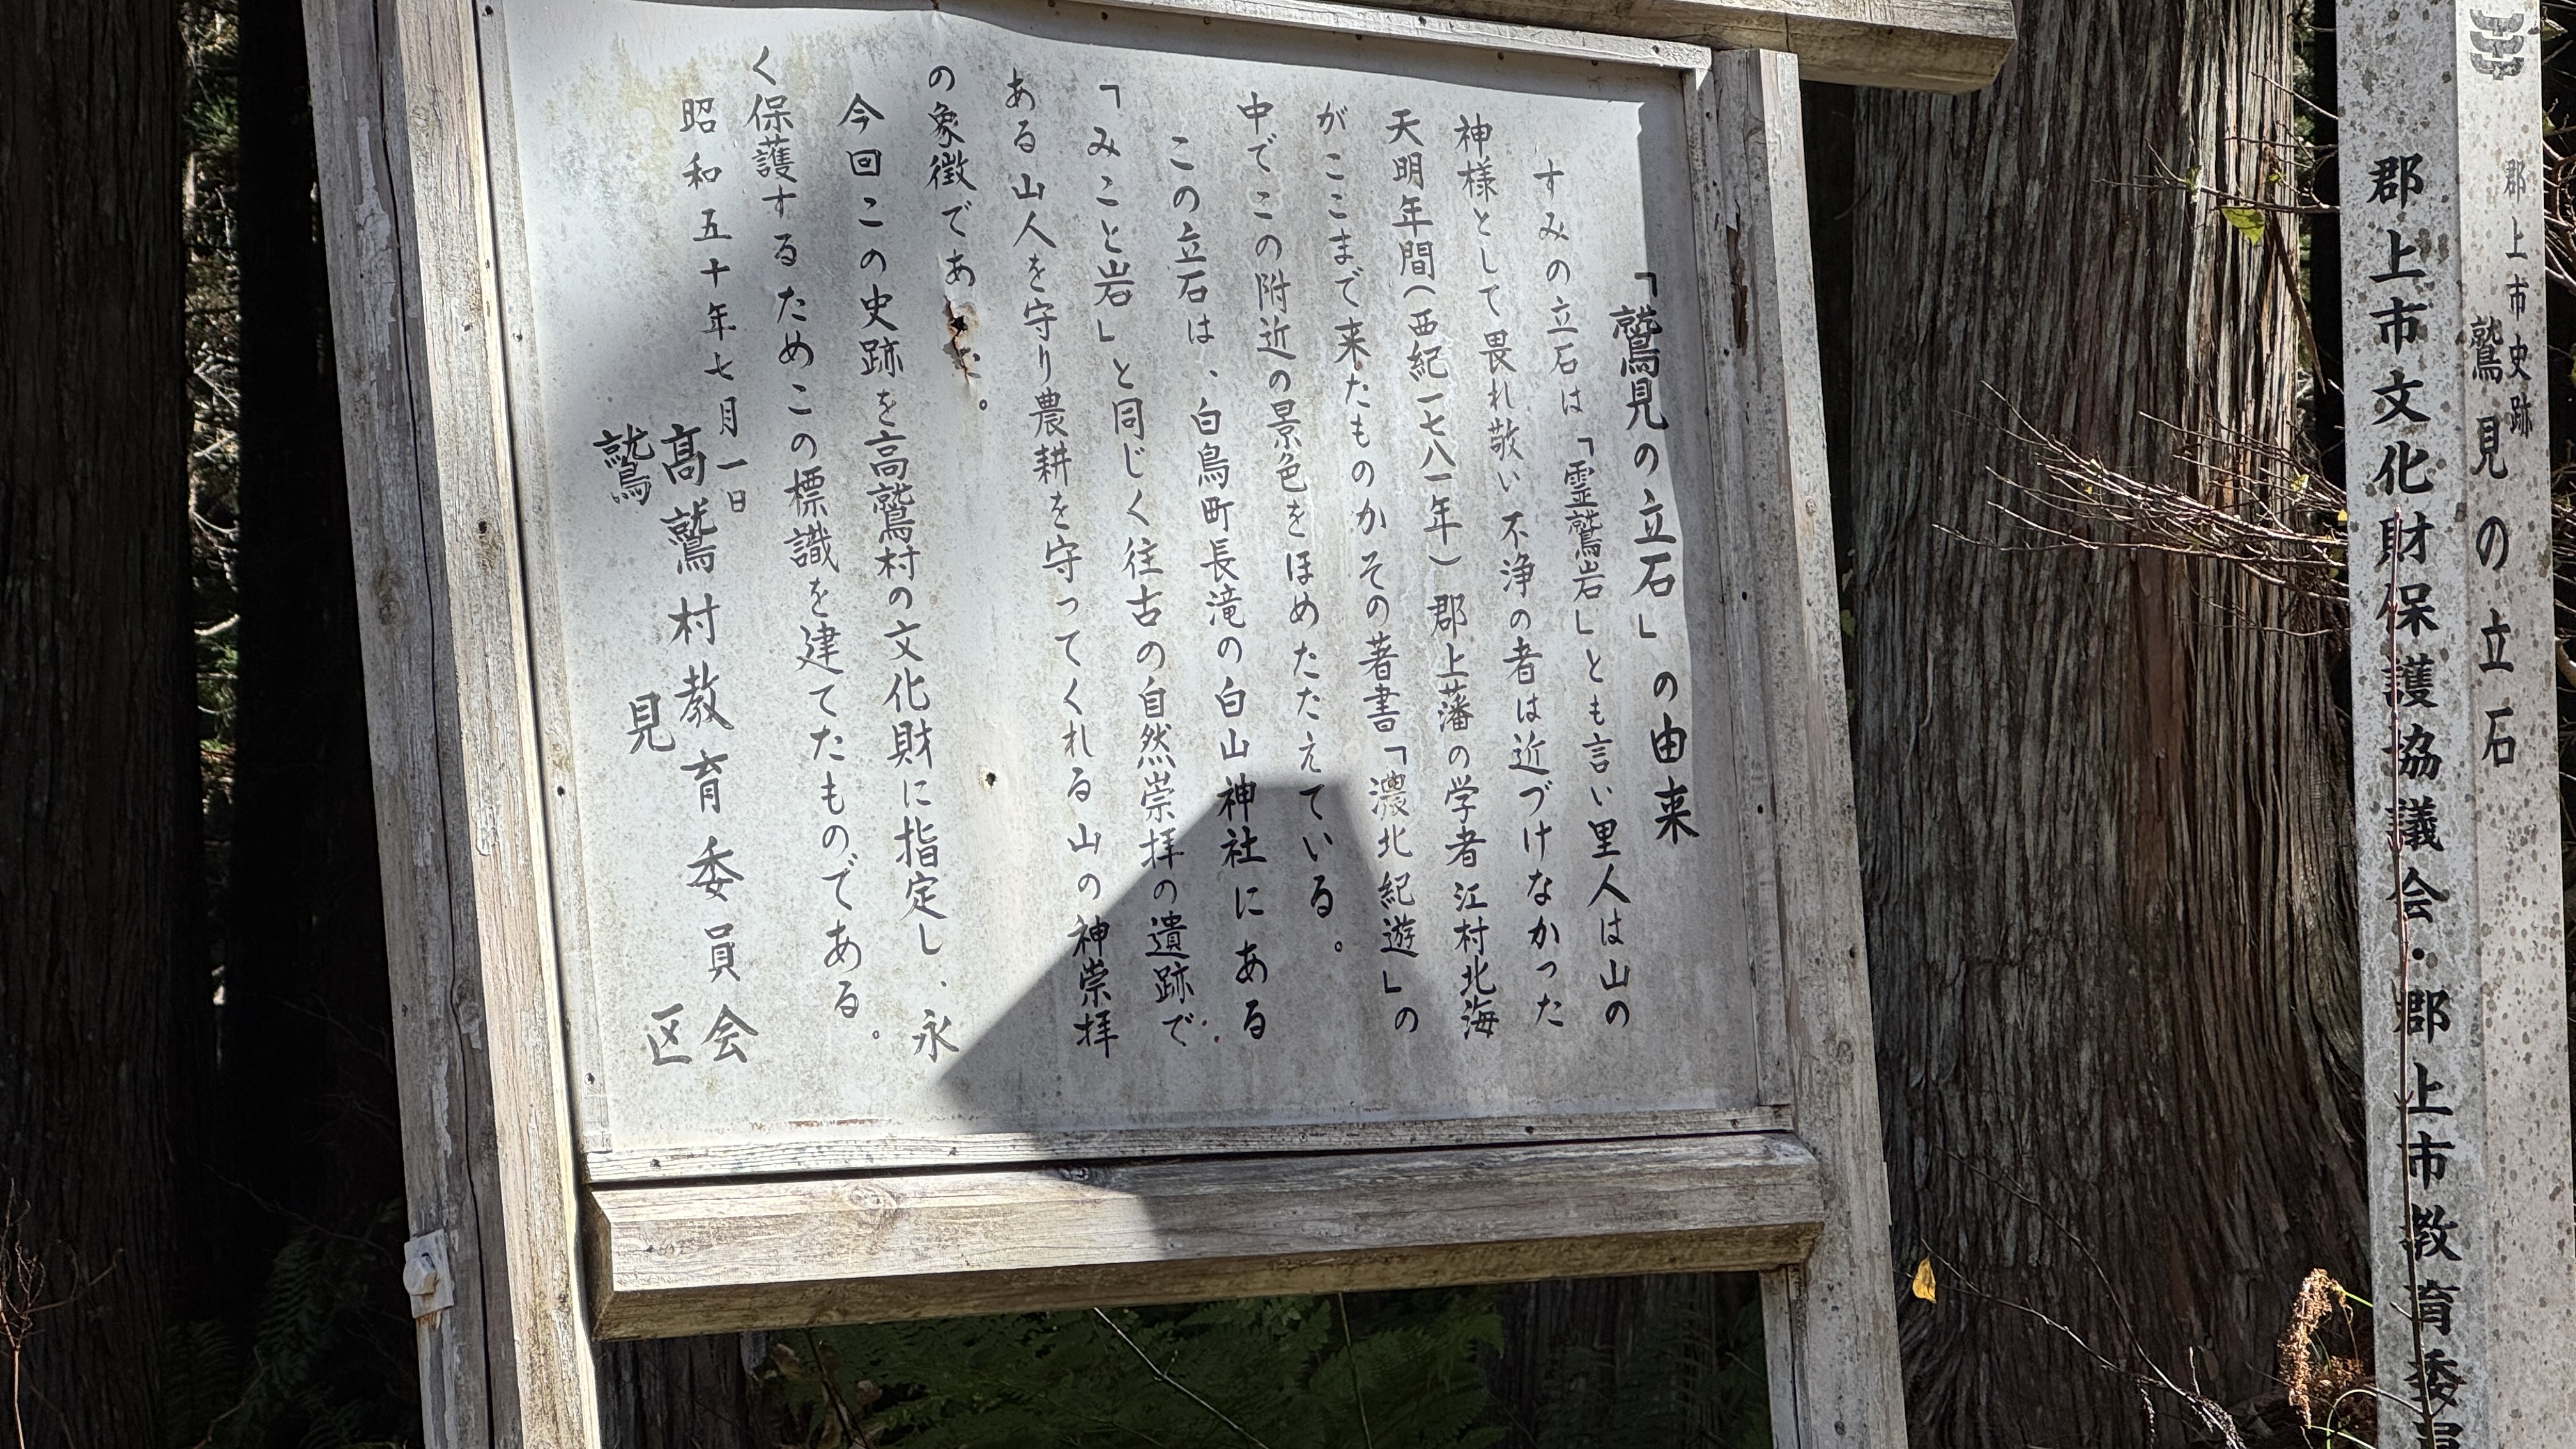 「鷲見の立石」の由来
すみの立石は「霊鷲岩」とも言い里人は山の
神様として畏れ敬い不浄の者は近づけなかった
天明年間(西紀一七八一年)郡上藩の学者江村北海
がここまで来たものかその著書「濃北紀遊」の
中でこの附近の景色をほめたたえている。
この立石は、白鳥町長滝の白山神社にある
「みこと岩」と同じく往古の自然崇拝の遺跡で
ある山人を守り農耕を守ってくれる山の神崇拝
の象徴であった。
今回この史跡を高鷲村の文化財に指定し、永
く保護するためこの標識を建てたものである。
昭和五十年七月一日
高鷲村教育委員会
鷲見区
郡上市史跡
鷲見の立石
郡上市文化財保護協議会・郡上市教育委員